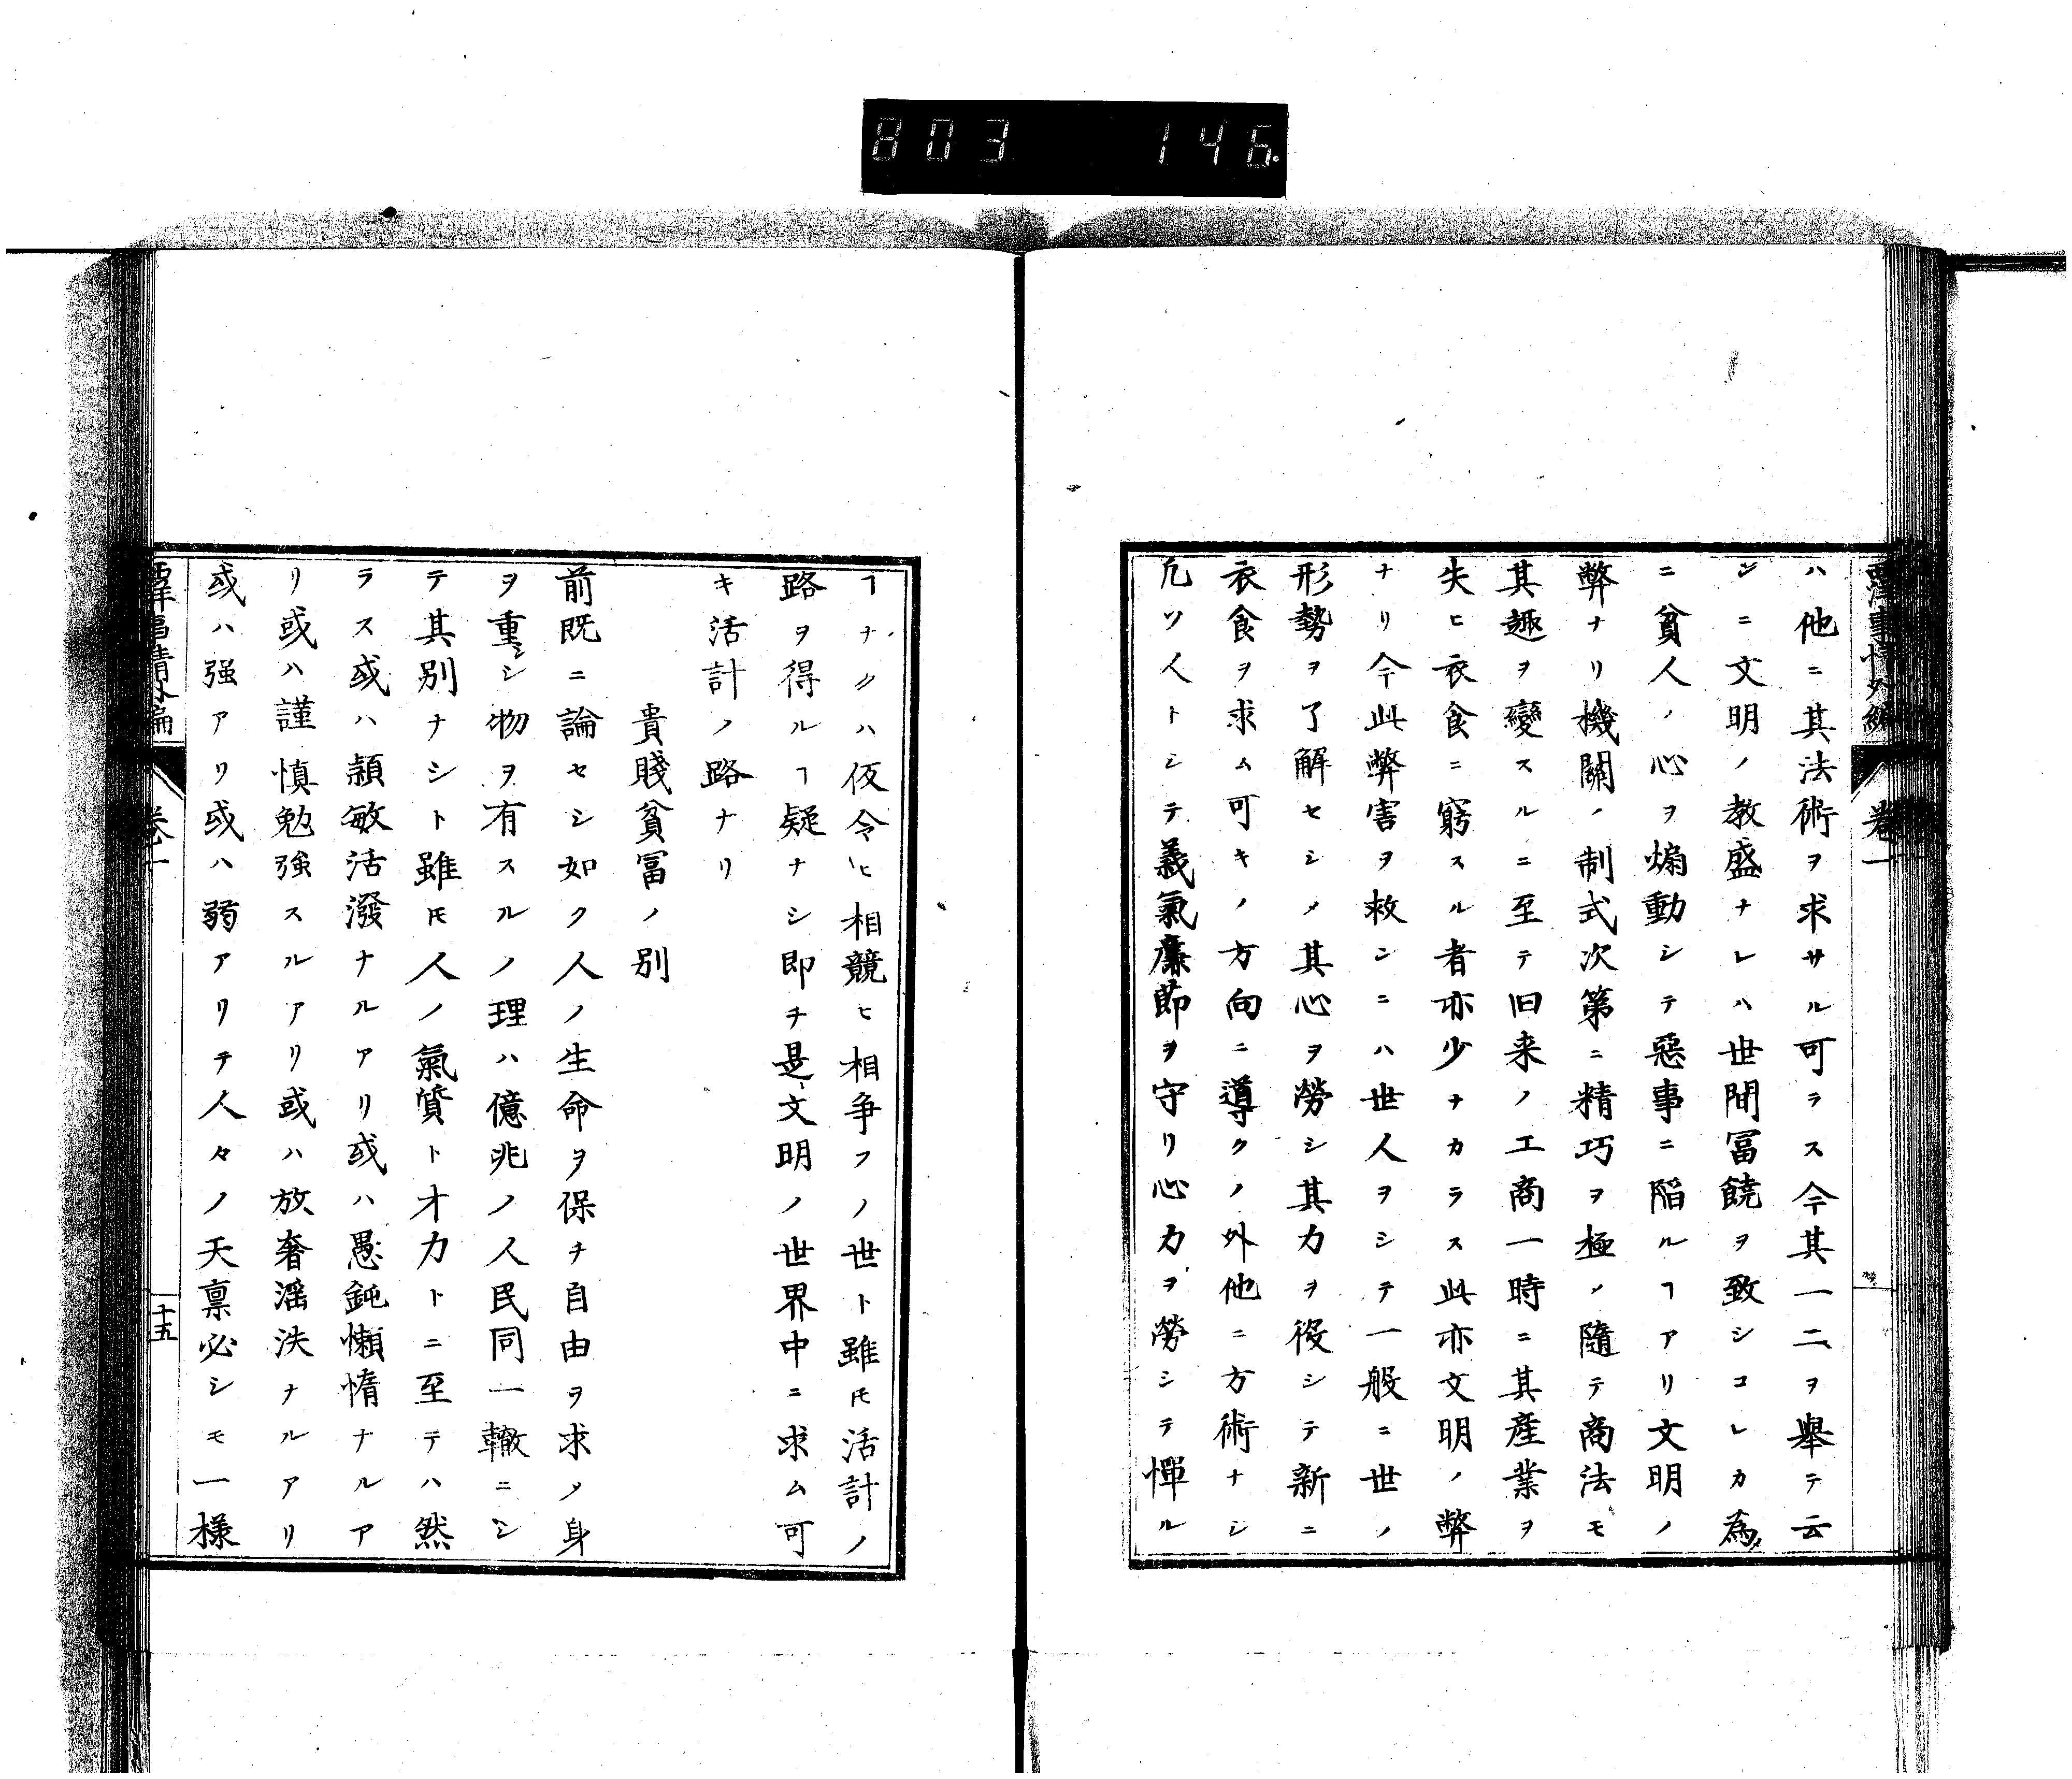 803 146.
西洋事情外編 卷一
ハ他ニ其法術ヲ求サル可ラス今其一二ヲ舉テ云
ンニ文明ノ教盛ナレハ世間冨饒ヲ致シコレカ為メ
ニ貧人ノ心ヲ煽動シテ惡事ニ陷ルヿアリ文明ノ
弊ナリ機關ノ制式次第ニ精巧ヲ極ノ隨テ商法モ
其趣ヲ變スルニ至テ旧来ノ工商一時ニ其産業ヲ
失ヒ衣食ニ窮スル者亦少ナカラス此亦文明ノ弊
ナリ今此弊害ヲ救ンニハ世人ヲシテ一般ニ世ノ
形勢ヲ了解セシメ其心ヲ勞シ其力ヲ役シテ新ニ
衣食ヲ求ム可キノ方向ニ導クノ外他ニ方術ナシ
凡ソ人トシテ義氣廉節ヲ守リ心力ヲ勞シテ憚ル
ヿナクハ仮令ヒ相競ヒ相爭フノ世ト雖ㇳモ活計ノ
路ヲ得ルヿ疑ナシ即チ是文明ノ世界中ニ求ム可
キ活計ノ路ナリ
貴賤貧冨ノ別
前既ニ論セシ如ク人ノ生命ヲ保チ自由ヲ求メ身
ヲ重ンシ物ヲ有スルノ理ハ億兆ノ人民同一轍ニシ
テ其別ナシト雖ㇳモ人ノ氣質ト才力トニ至テハ然
ラス或ハ頴敏活潑ナルアリ或ハ愚鈍懶惰ナルア
リ或ハ謹慎勉強スルアリ或ハ放奢滛泆ナルアリ
或ハ强アリ或ハ弱アリテ人々ノ天禀必シモ一様
西洋事情外編 卷一 十五